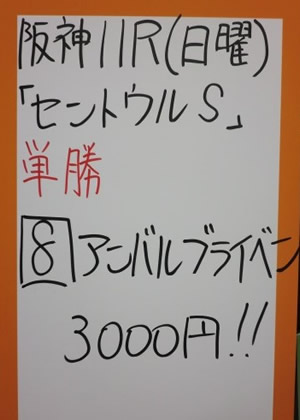 阪神11R(日曜)
「セントウルS」
単勝
8 アンバルブライベン
3000円!!